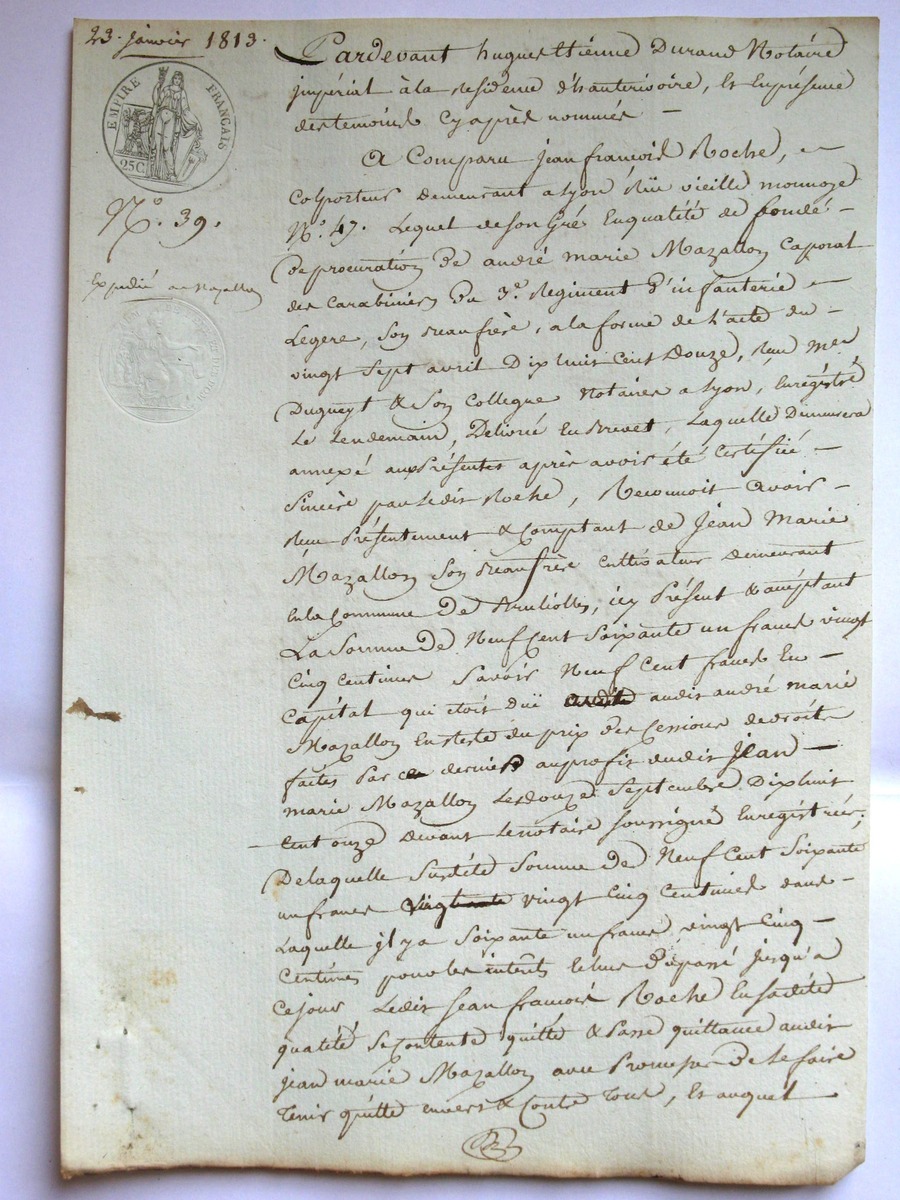 23. Janvier 1813.
EMPIRE FRANÇAIS
25C
N.° 39.
Expedié au Mazallon
Pardevant hugues Etienne Durand Notaire
jmpérial à la Residence d'hauterivoire, Et En présence
des temoins Cy après nommés —
A Comparu jean françois Roche, —
Colporteur demeurant a Lyon Rüe vieille monnoye
N.° 47. Lequel de son Gré En qualité de fondé —
De procuration De andré marie Mazallon Caporal
des Carabiniers Du 3.e Regiment D'infanterie —
Legere, Son Beaufrère, a la forme de L'acte du —
vingt Sept avril Dix huit Cent Douze, Reçu Mes
Dugueyt & Son Collegue Notaires a Lyon, Enregistré
Le Lendemain, Délivré En Brevet, Laquelle Demeurera
annexé aux Présentes après avoir été Certifiée —
Sincère par Ledit Roche, Reconnoit avoir —
Reçu Présentement & Comptant de Jean Marie
Mazallon Son Beaufrère Cultivateur Demeurant
En la Commune De Brulliolles, icy Présent & acceptant
La Somme De Neuf Cent Soixante un francs vingt
Cinq Centimes Savoir Neuf Cent francs En —
Capital qui étoit dü audit andré marie
Mazallon En Reste du prix des Cessions de droits
faites Par ce dernier au profit dudit Jean —
marie Mazallon Le douze Septembre Dix huit
Cent onze Devant Le Notaire Soussigné Enregistrées;
De laquelle Susdite Somme De Neuf Cent Soixante
un francs vingt Cinq Centimes dans —
Laquelle jl y a Soixante un francs vingt Cinq —
Centimes pour les intérêts Echus D'epassé jusqu'a
Ce jour Ledit Jean françois Roche En Sa dite
qualité Se Contente quitte & Passe quittance audit
jean marie Mazallon avec Promesse De Le faire
Tenir quitte envers & Contre Tous, Et auquel —